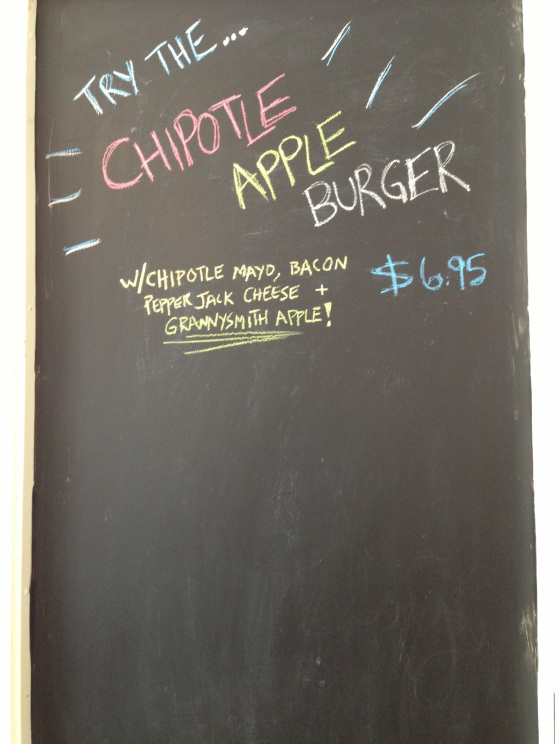 TRY THE...
CHIPOTLE
APPLE
BURGER
W/CHIPOTLE MAYO, BACON
PEPPER JACK CHEESE +
GRANNYSMITH APPLE!
$6.95